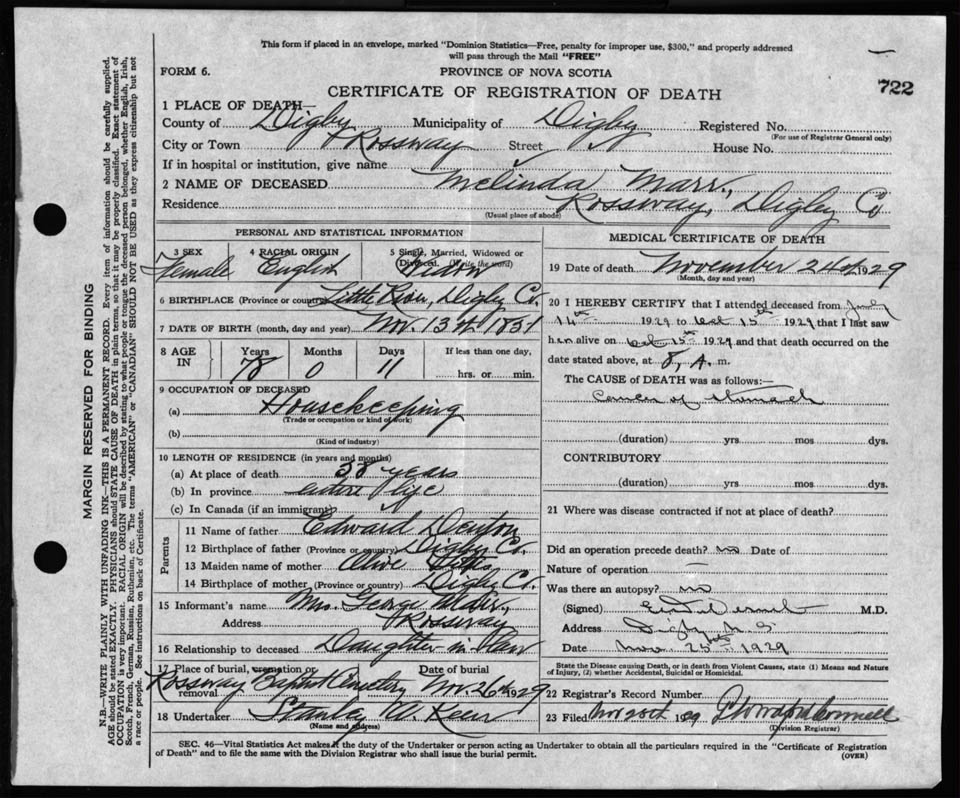 This form if placed in an envelope, marked "Dominion Statistics—Free, penalty for improper use, $300," and properly addressed
will pass through the Mail "FREE"
FORM 6.
PROVINCE OF NOVA SCOTIA
722
CERTIFICATE OF REGISTRATION OF DEATH
1 PLACE OF DEATH—
County of Digby Municipality of Digby Registered No.
(For use of Registrar General only)
City or Town Rossway Street House No.
If in hospital or institution, give name
2 NAME OF DECEASED Melinda Marr,
Residence Rossway, Digby Co
(Usual place of abode)
PERSONAL AND STATISTICAL INFORMATION
3 SEX 4 RACIAL ORIGIN 5 Single, Married, Widowed or
Divorced. (Write the word)
Female English Widow
6 BIRTHPLACE (Province or country) Little River, Digby Co.
7 DATE OF BIRTH (month, day and year) Nov. 13th 1851
8 AGE IN Years Months Days If less than one day,
78 0 11 hrs. or min.
9 OCCUPATION OF DECEASED
(a) Housekeeping
(Trade or occupation or kind of work)
(b)
(Kind of industry)
10 LENGTH OF RESIDENCE (in years and months)
(a) At place of death 58 years
(b) In province entire life
(c) In Canada (if an immigrant)
Parents
11 Name of father Edward Denton
12 Birthplace of father (Province or country) Digby Co.
13 Maiden name of mother Olive
14 Birthplace of mother (Province or country) Digby Co.
15 Informant's name Mrs. George
Address Rossway
16 Relationship to deceased Daughter in Law
17 Place of burial, cremation or removal Date of burial
Rossway Baptist Cemetery Nov. 26th 1929
18 Undertaker Stanley W.
(Name and address)
MEDICAL CERTIFICATE OF DEATH
19 Date of death November 24th 1929
(Month, day and year)
20 I HEREBY CERTIFY that I attended deceased from July
14th 1929 to Oct 15th 1929 that I last saw
her alive on Oct 15th 1929 and that death occurred on the
date stated above, at 8, A. m.
The CAUSE of DEATH was as follows:—
Cancer of Stomach
(duration) yrs. mos. dys.
CONTRIBUTORY
(duration) yrs. mos. dys.
21 Where was disease contracted if not at place of death?
Did an operation precede death? no Date of
Nature of operation —
Was there an autopsy? no
(Signed) M.D.
Address Digby N.S.
Date Nov 25th 1929
State the Disease causing Death, or in death from Violent Causes, state (1) Means and Nature
of Injury, (2) whether Accidental, Suicidal or Homicidal.
22 Registrar's Record Number
23 Filed
(Division Registrar)
SEC. 46—Vital Statistics Act makes it the duty of the Undertaker or person acting as Undertaker to obtain all the particulars required in the "Certificate of Registration
of Death" and to file the same with the Division Registrar who shall issue the burial permit.
(OVER)
MARGIN RESERVED FOR BINDING
N.B.—WRITE PLAINLY WITH UNFADING INK—THIS IS A PERMANENT RECORD. Every item of information should be carefully supplied.
AGE should be stated EXACTLY. PHYSICIANS should STATE CAUSE OF DEATH in plain terms, so that it may be properly classified. Exact statement of
OCCUPATION is very important. RACIAL ORIGIN will be described by stating to what people or tongue the deceased person belonged, whether English, Irish,
Scotch, French, German, Russian, Ruthenian, etc. The terms "AMERICAN" or "CANADIAN" SHOULD NOT BE USED as they express citizenship but not
a race or people. See instructions on back of Certificate.